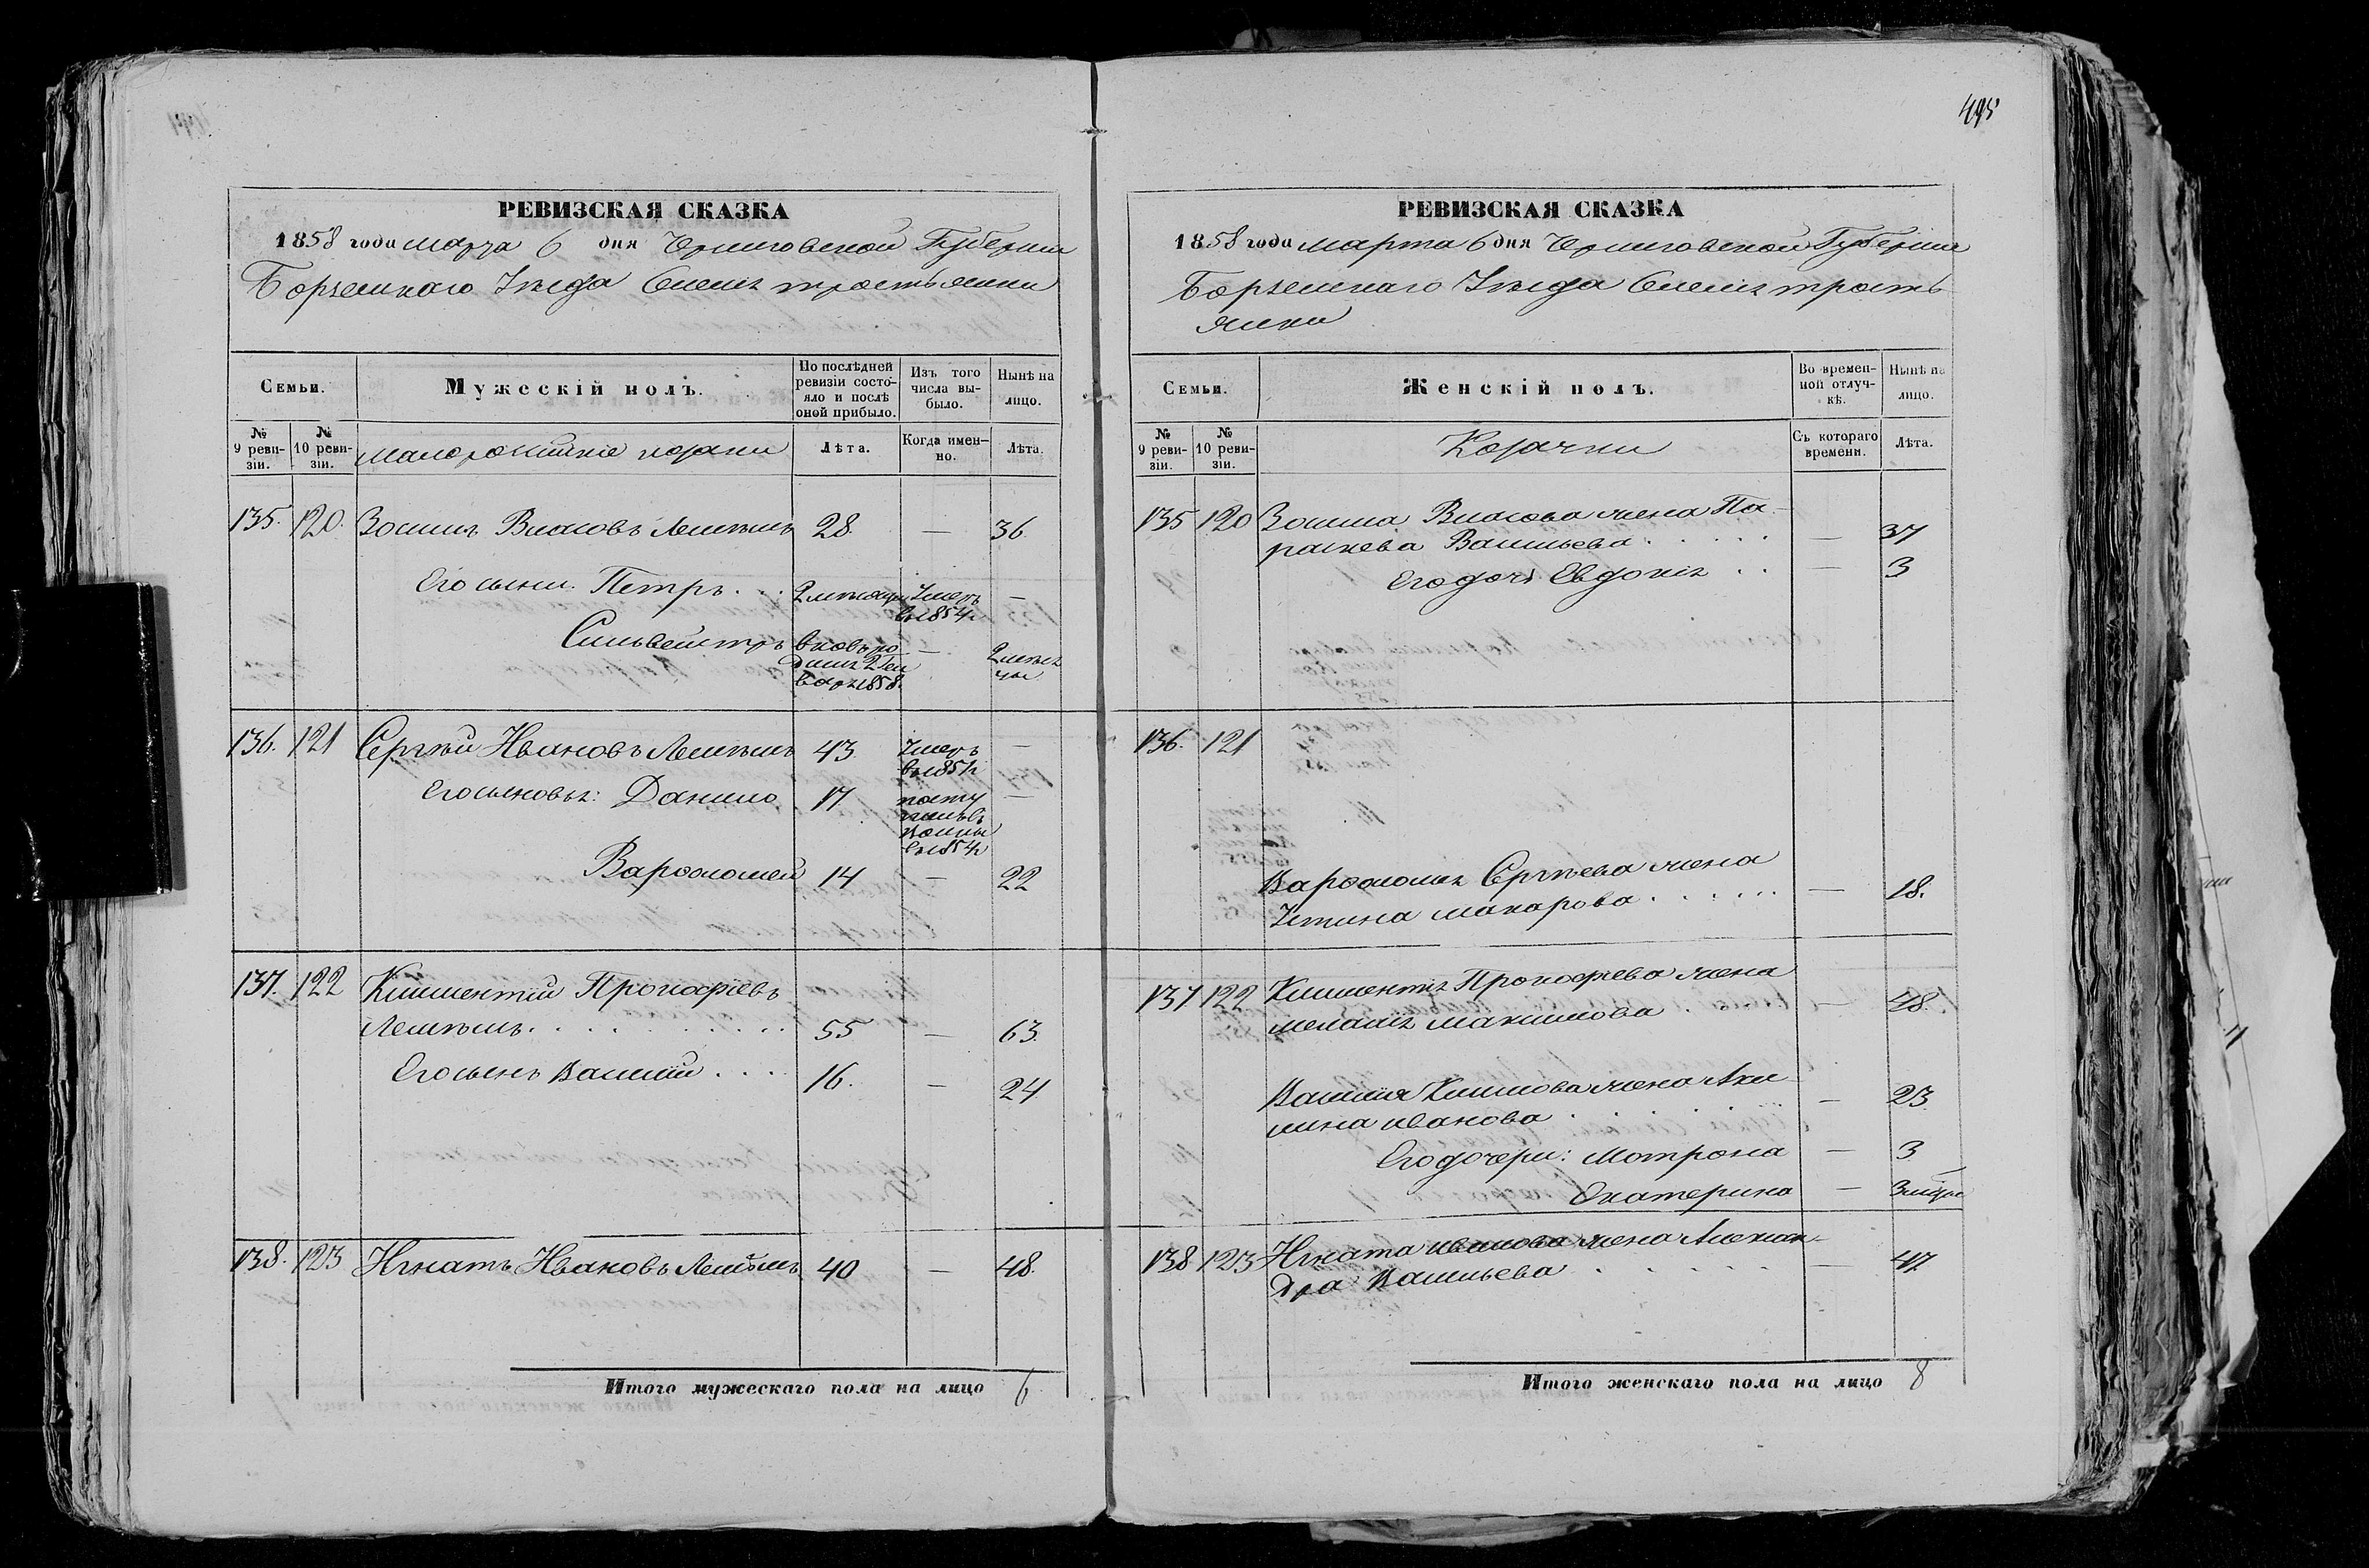 495
РЕВИЗСКАЯ СКАЗКА
1858 года марта 6 дня Черниговской Губернии
Борзенскаго Уезда Села Тростьянки
Семьи.
Мужескій полъ.
По послѣдней ревизіи состо-
яло и послѣ
оной прибыло.
Изъ того
числа вы-
было.
Нынѣ на
лицо.
№
9 реви-
зіи.
№
10 реви-
зіи.
малороссийские козаки
Лѣта.
Когда имен-
но.
Лѣта.
135. 120. Зосимъ Власовъ 28. — 36.
Его сыны. Петръ . . . 2 месяцы Умеръ —
в 1854 г
Сильвестръ вновь ро — 2 меся
дился 2 Ген цы
варя 1858.
136. 121 Сергѣй Ивановъ 43 Умеръ —
Его сыновья: Данило 17 посту —
Варфоломей 14 — 22
137. 122 Климентий Прокофиевъ
55 — 63.
Его сынъ Василий . . . 16. — 24
138. 123 Игнатъ Ивановъ 40 — 48.
Итого мужескаго пола на лицо 6
РЕВИЗСКАЯ СКАЗКА
1858 года марта 6 дня Черниговской Губернии
Борзенскаго Уезда Села Трость
янки
Семьи.
Женскій полъ.
Во времен-
ной отлуч-
кѣ.
Нынѣ на
лицо.
№
9 реви-
зіи.
№
10 реви-
зіи.
Козачки
Съ котораго
времени.
Лѣта.
135 120 Зосима Власова жена Па-
раскева Васильева . . . . . — 37
Его дочь Евдокия . . — 3
136. 121
Варфоломея Сергѣева жена
Устина Макарова . . . . . — 18.
137 122 Климентия Прокофиева жена
Мелания Максимова . — 48.
Василия Климова жена Аки
лина Иванова . . . . . — 23
Его дочери: Мотрона — 3
Екатерина —
138 123 Игната Иванова жена Алексан-
дра Васильева . . . . . — 47
Итого женскаго пола на лицо 8